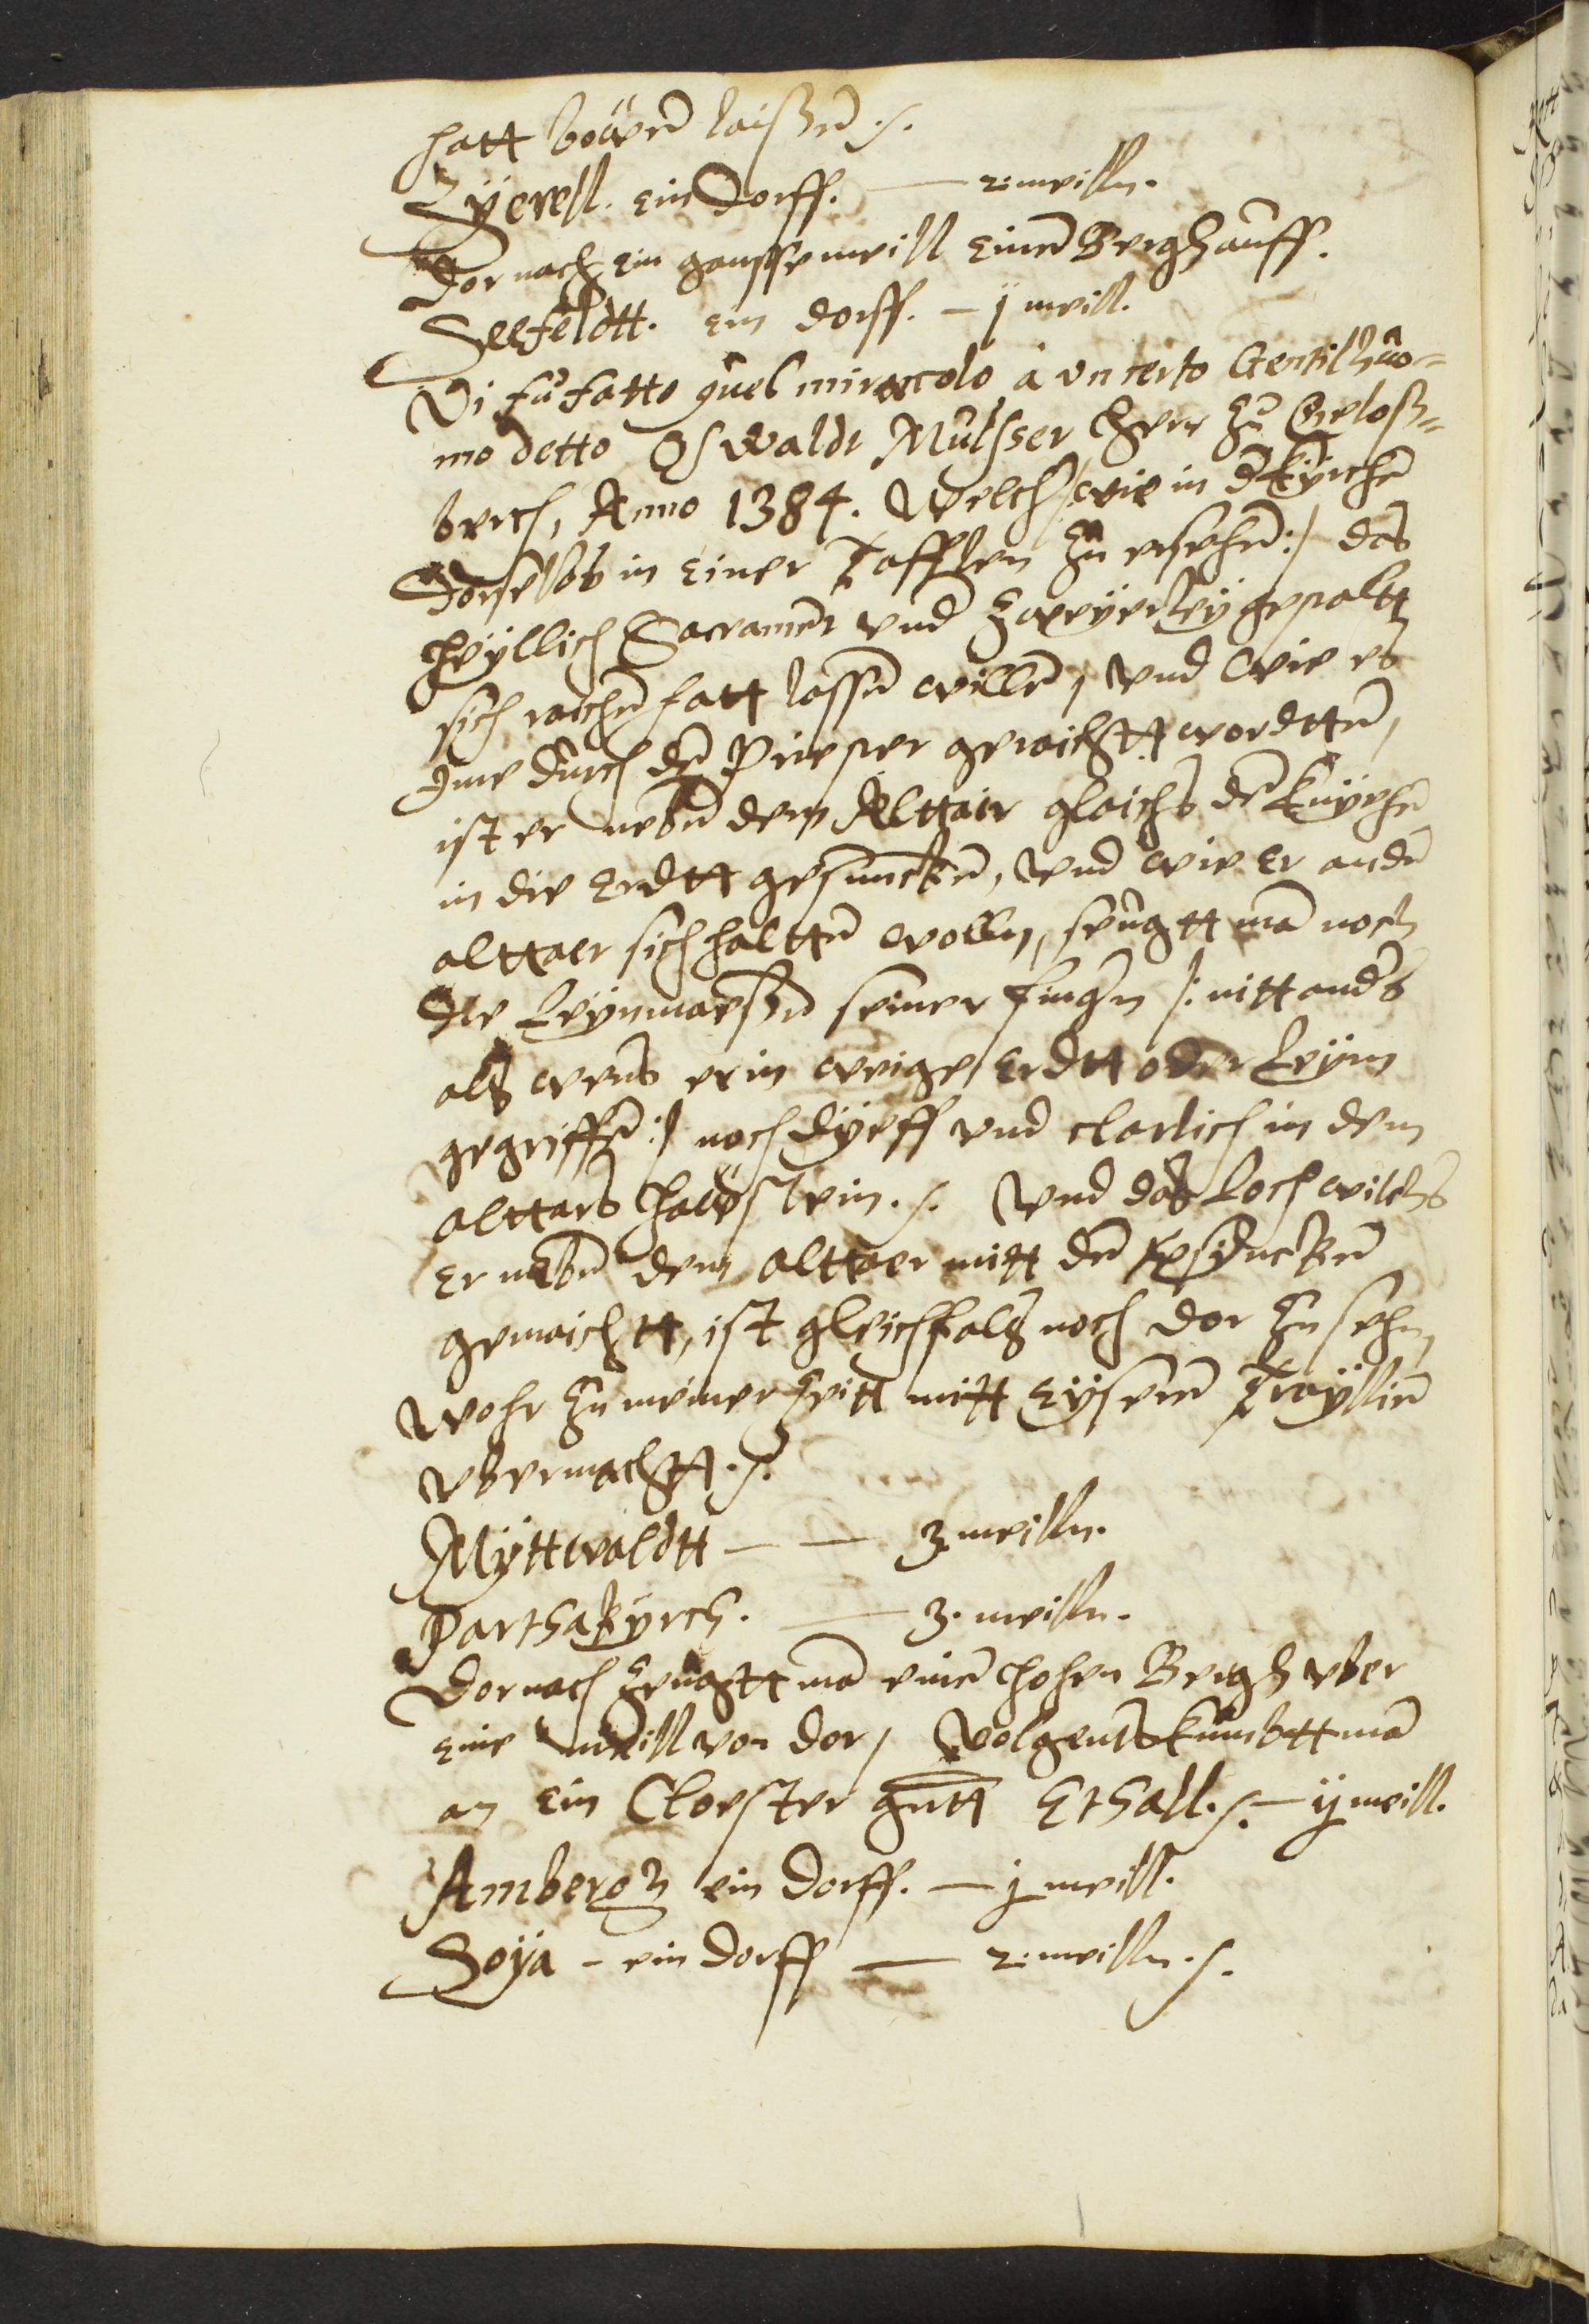 hatt boüwen laißen ./.
Zyerell. ein Dorff. — 2: meillen.
Dornach ein gantse meill einen Bergh auff.
Seefeldtt. ein dorff. — j meill.
Di fu fatto quel miracolo à un certo Gentilhuo=
mo detto Oswaldt Mulsser Herr zu Schloß=
berch, Anno 1384. Welch /: wie in d kyrchen
Dorselbs in einer Tafflen zu ersehen :/ das
Heyllich Sacrament und zweyerley gestalt
sich raichen hatt lassen willen, und wie es
Ime durch den Priester geraichtt wordtten,
ist er neben dem Alttair gleichs den knyehen
in die Erdtt gesuncken, und wie Er an den
alttaer sich haltten wollen, seugtt man noch
die Leynmaessen seiner fingern /: nitt anders
als wens er in weige Erdtt oder Leym
gegriffen :/ noch dyeff und clarlich in dem
alttars hauwstein ./. Und das Loch wilchs
Er neben dem alttaer mitt den
gemaichtt, ist gleichfals noch dor zu sehen,
Wohr zu meiner zeitt mitt Eyseren Trayllien
ubermachtt ./.
Myttwaldtt — — 3 meillen.
Parthakyrch. — 3. meillen.
Dornach zeugtt man einen hohen Bergh uber
eine meill von dor, Volgents kumbtt man
an ein Cloester gnt Ethall ./. — ij meill.
Ambergh ein Dorff. — j meill.
Soya – ein Dorff — 2: meillen ./.